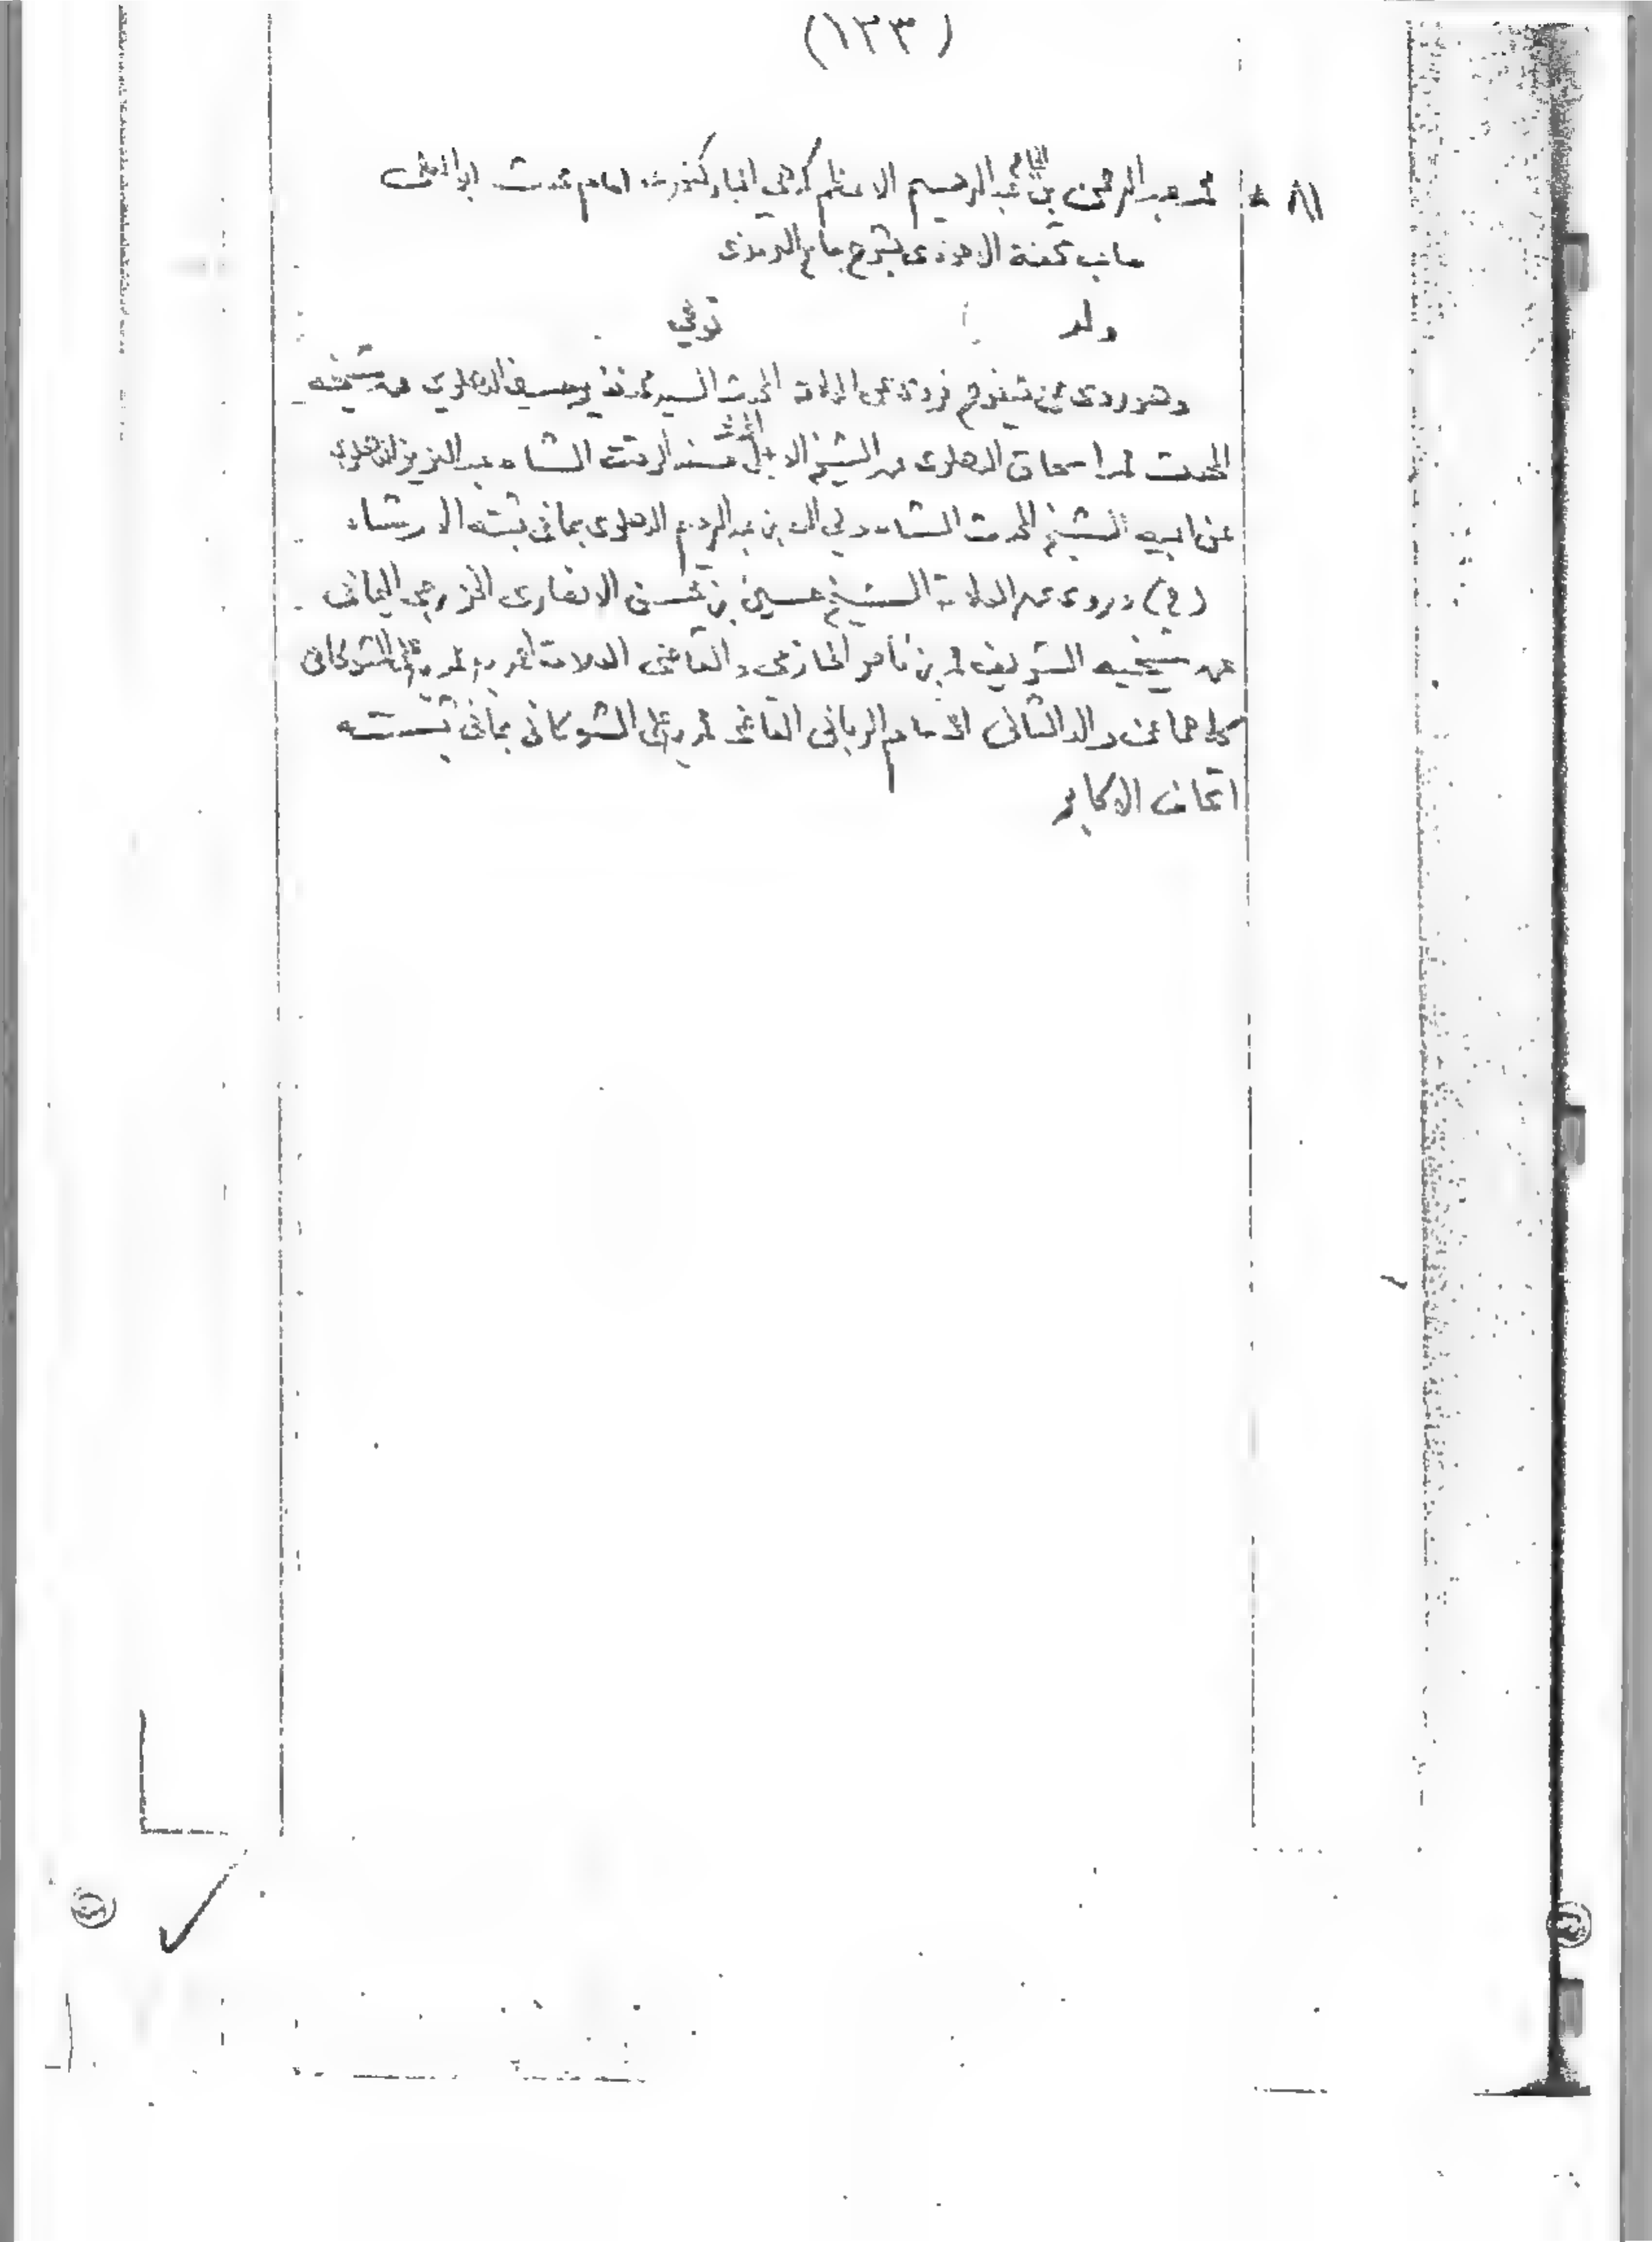 (١٣٣)
٨١ * محمد عبد الرحمن بن الحافظ عبد الرحيم الاعظم كرهي المباركفوري امام محدث ابو العلى
صاحب تحفة الاحوذى بشرح جامع الترمذى
ولد توفي
وهو روى عن شيوخ فروى عن العلامة المحدث السيد محمد نذير حسين الدهلوي عن شيخه
المحدث محمد اسحاق الدهلوى عن الشيخ الاجل المحدث مسند الوقت الشاه عبد العزيز الدهلوي
عن ابيه الشيخ المحدث الشاه ولي الله بن عبد الرحيم الدهلوى بما في ثبته الارشاد
(ح) وروى عن العلامة الشيخ حسين بن محسن الانصارى الخزرجي اليماني
عن شيخيه الشريف محمد بن ناصر الحازمي والقاضى العلامة احمد بن محمد بن علي الشوكانى
كلاهما عن والد الثانى الامام الربانى القاضى محمد بن علي الشوكانى بما في ثبته
اتحاف الاكابر